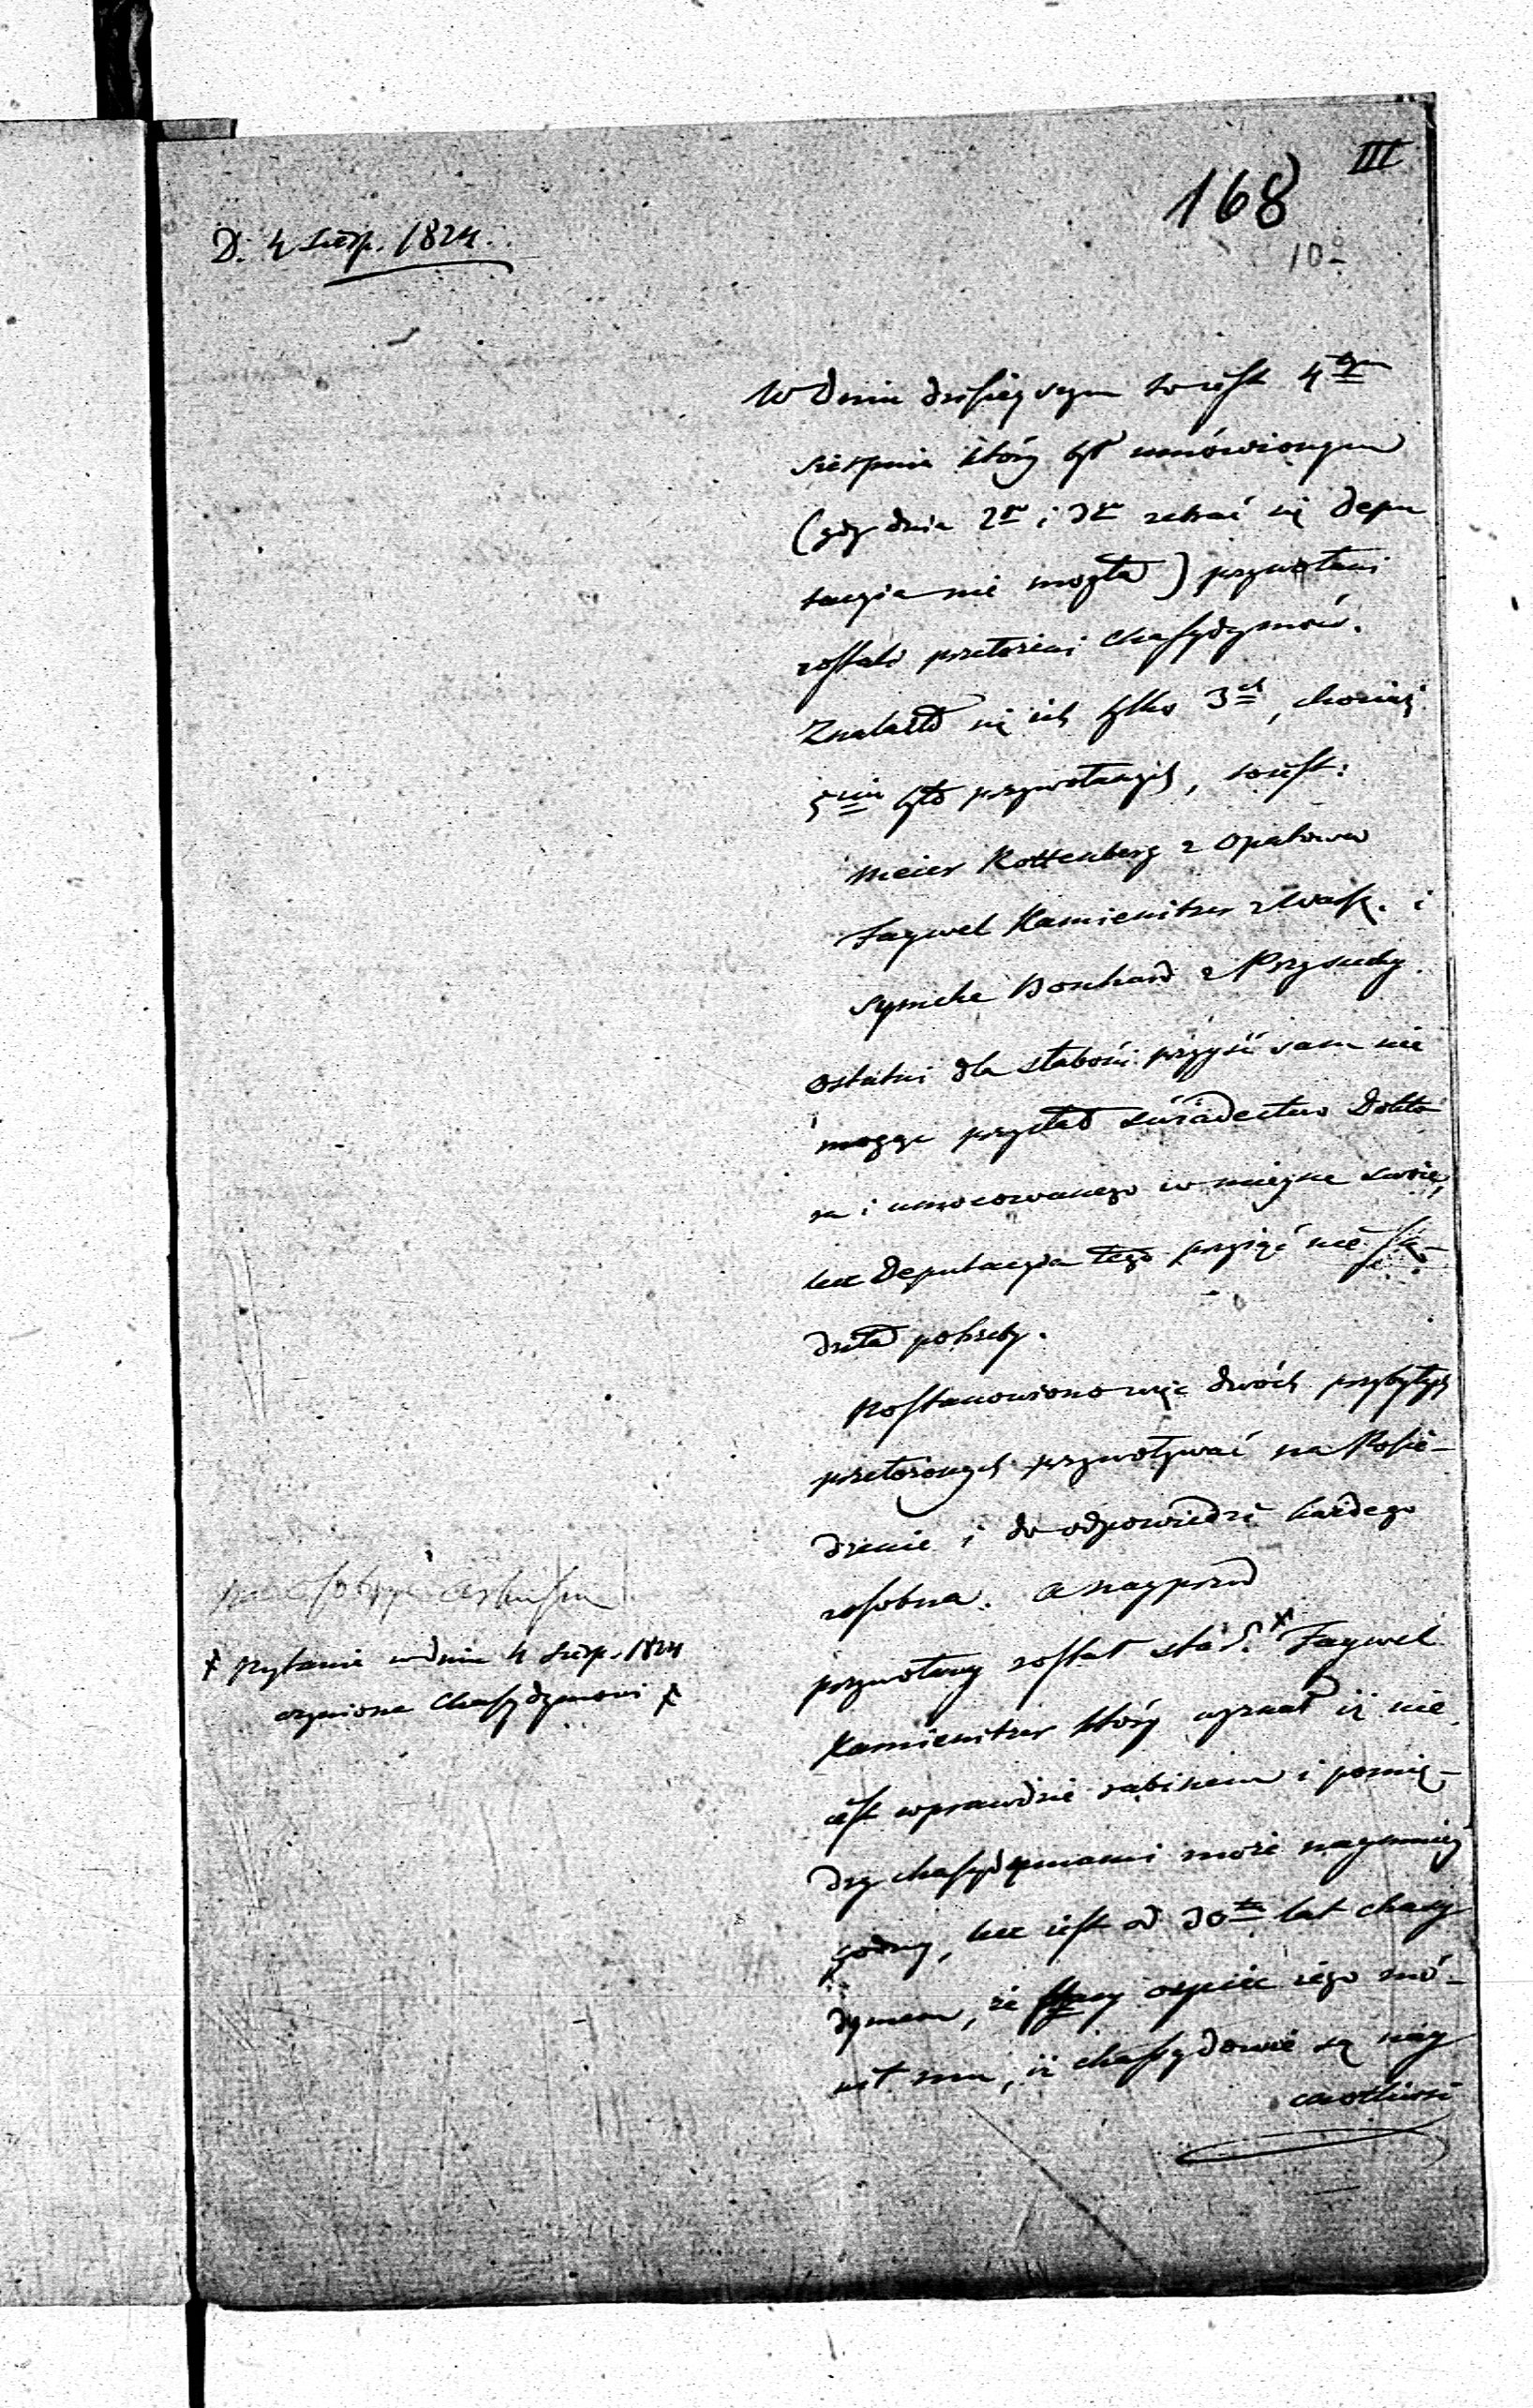 III
168
10
D. 4 Sierp. 1824.
W dniu dzisieyszym to iest 4tym
sierpnia który był umówionym
(gdy dnia 2o i 3o zebrać się depu
tacyia nie mogła) przywołani
zostali przełożeni chassydymów.
Znalazło się ich tylko 3ch, chociaż
5ciu było przywołanych, to iest:
Meier Rottenberg z Opatowa
Faywel Kamienitzer z Warsz. i
Symcha Bonhard z Przysuchy.
Ostatni dla słabości przyyść sam nie
mogąc przysłał świadectwo Dokto
ra i umocowanego w mieysce swoie,
lecz Deputacyia tego przyiąć nie są-
dziła potrzeby.
Postanowiono więc dwóch przybyłych
przełożonych przywoływać na Posie-
dzenie i do odpowiedzi każdego
zosobna. A nayprzód
przywołany został
Faywel
Kamienitzer który wyznał iż nie
iest wprawdzie rabinem i pomię-
dzy chassydymami może naymniey
godny, lecz iest od 30tu lat chassy
dymem, że oyciec iego mó-
wił mu, iż chassydowie są nay
cnotliwsi
x Pytanie w dniu 4 Sierp. 1824
czynione Chassydymowi x